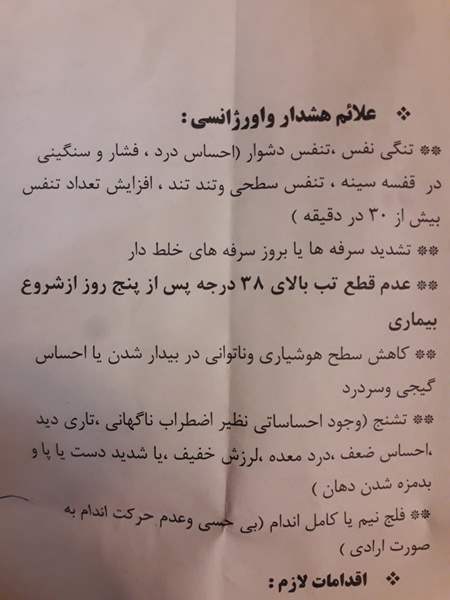 ❖ علائم هشدار واورژانسی :
** تنگی نفس ،تنفس دشوار (احساس درد ، فشار و سنگینی
در قفسه سینه ، تنفس سطحی وتند تند ، افزایش تعداد تنفس
بیش از ۳۰ در دقیقه )
** تشدید سرفه ها یا بروز سرفه های خلط دار
** عدم قطع تب بالای ۳۸ درجه پس از پنج روز ازشروع
بیماری
** کاهش سطح هوشیاری وناتوانی در بیدار شدن یا احساس
گیجی وسردرد
** تشنج (وجود احساساتی نظیر اضطراب ناگهانی ،تاری دید
،احساس ضعف ،درد معده ،لرزش خفیف ،یا شدید دست یا پا و
بدمزه شدن دهان )
** فلج نیم یا کامل اندام (بی حسی وعدم حرکت اندام به
صورت ارادی )
❖ اقدامات لازم :